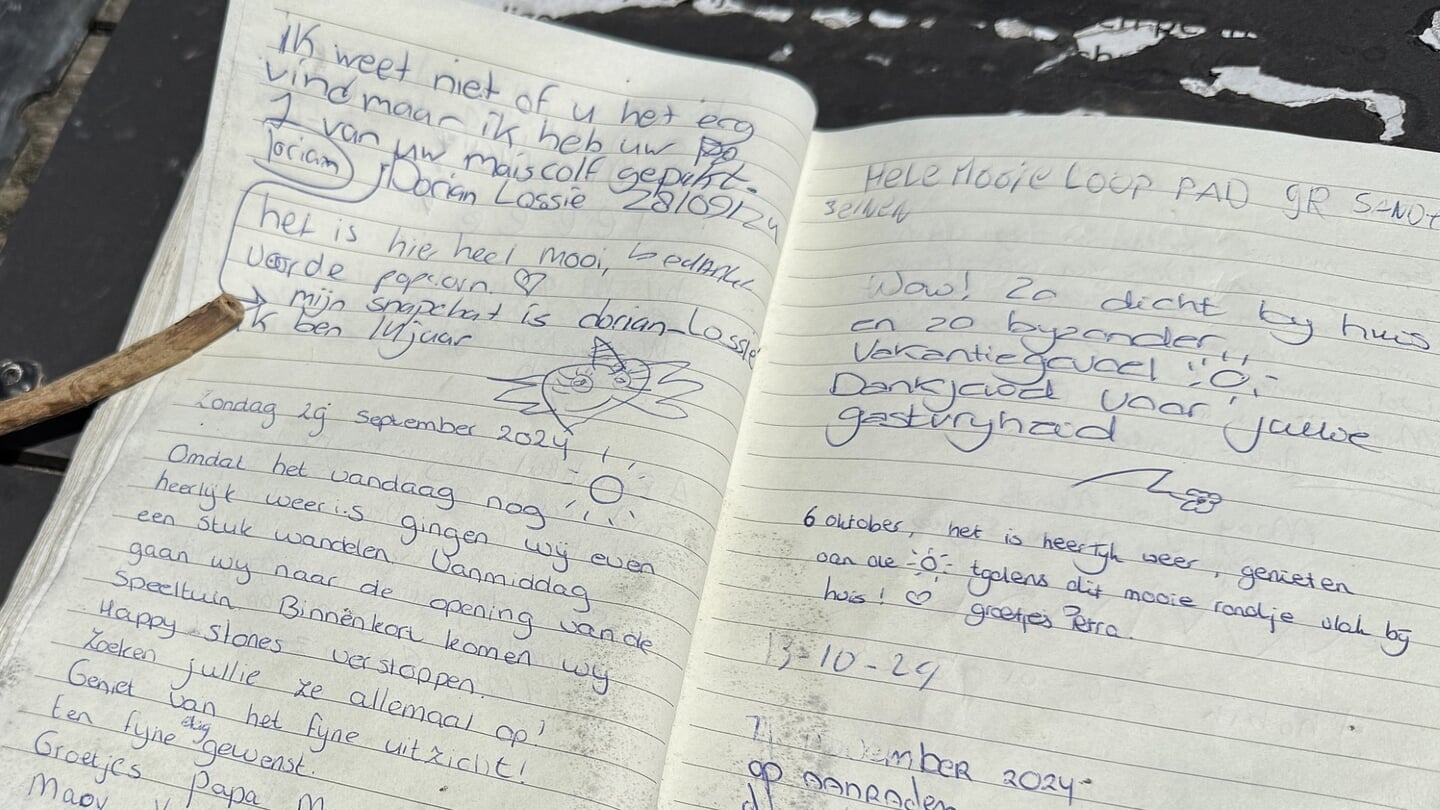 ik weet niet of u het erg
vind maar ik heb uw
1 van uw maiscolf gepakt.
Dorian Lossie 28/09/24
het is hier heel mooi, bedankt
voor de popcorn ♡
→ mijn snapchat is dorian-Lossie
ik ben 14 jaar
Zondag 29 september 2024
Omdat het vandaag nog
heerlijk weer is gingen wij even
een stuk wandelen. Vanmiddag
gaan wij naar de opening van de
speeltuin. Binnenkort komen wij
Happy stones verstoppen.
Zoeken jullie ze allemaal op!
Geniet van het fijne uitzicht!
Een fijne dag gewenst.
Groetjes Papa M
HELE MOOIE LOOP PAD GR
Wow! Zo dicht bij huis
en zo byzonder!!
Vakantiegevoel
Dankjewel voor jullie
gastvryheid
6 oktober, het is heerlijk weer, genieten
van de tijdens dit mooie rondje vlak bij
huis! ♡ groetjes Petra.
13-10-24
ember 2024
op AANRADEN